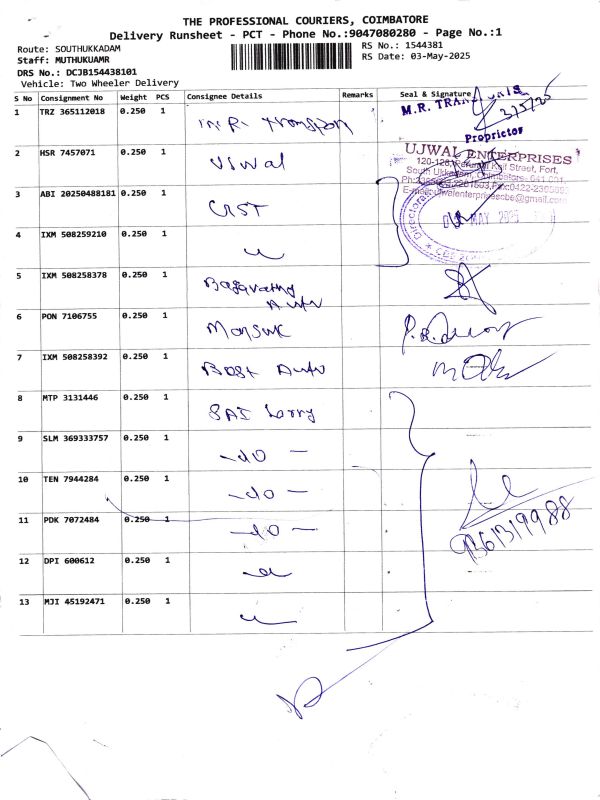 THE PROFESSIONAL COURIERS, COIMBATORE
Delivery Runsheet - PCT - Phone No.:9047080280 - Page No.:1
Route: SOUTHUKKADAM
RS No.: 1544381
Staff: MUTHUKUAMR
RS Date: 03-May-2025
DRS No.: DCJB154438101
Vehicle: Two Wheeler Delivery
S No Consignment No Weight PCS Consignee Details Remarks Seal & Signature
1 TRZ 365112018 0.250 1 M.R. Transport M.R. TRANSPORTS 3/5/25
Proprietor
2 HSR 7457071 0.250 1 UJWAL ENTERPRISES
South Ukkadam, Coimbatore- 641 001.
3 ABI 20250488181 0.250 1 GST
MAY 2025
4 IXM 508259210 0.250 1
5 IXM 508258378 0.250 1 Bagavathy
Auto
6 PON 7106755 0.250 1
7 IXM 508258392 0.250 1 Best Auto
8 MTP 3131446 0.250 1 SAI Lorry
9 SLM 369333757 0.250 1 -do-
10 TEN 7944284 0.250 1 -do-
11 PDK 7072484 0.250 1 -do-
12 DPI 600612 0.250 1
13 MJI 45192471 0.250 1